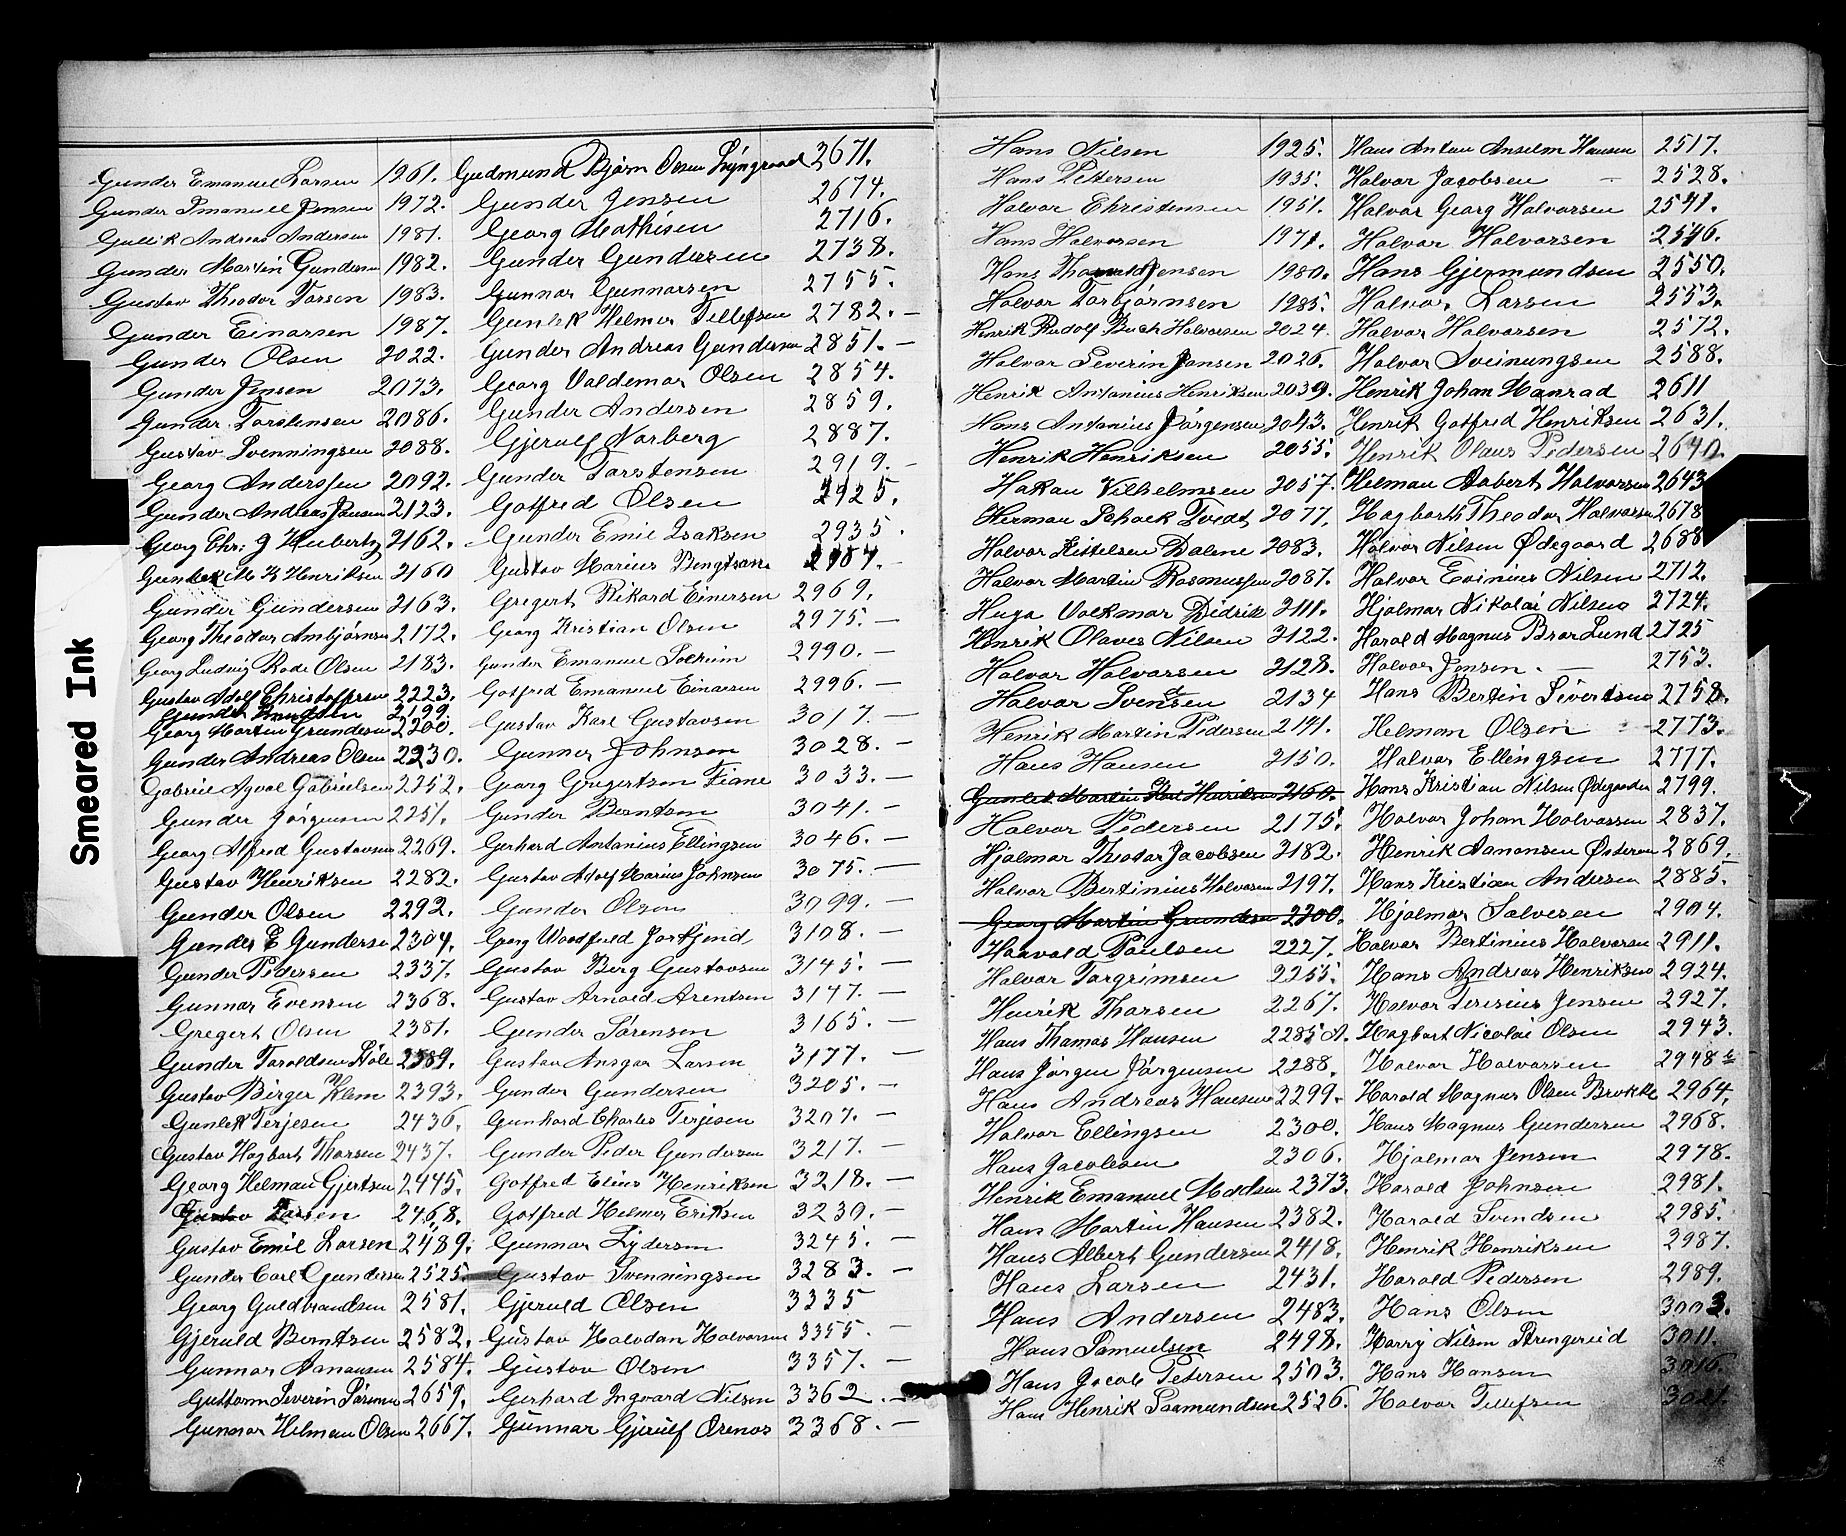 Smeared Ink
Gunder Emanuel Larsen 1961.
Gunder Emanuel Jensen 1972.
Gullik Andreas Andersen 1981.
Gunder Martin Gundersen 1982.
Gustav Theodor Tarsen 1983.
Gunder Einarsen 1987.
Gunder Olsen 2022.
Gunder Jensen 2073.
Gunder Torstensen 2086.
Gustav Svenningsen 2088.
Georg Anderssen 2092.
Gunder Andreas Jansen 2123.
Georg Chr: J Hubertz 2162.
Gunlek M K Henriksen 2160
Gunder Gundersen 2163.
Georg Theodor Ambjørnsen 2172.
Georg Ludvig Rode Olsen 2183.
Gustav Adolf Christoffersen 2223.
Gunder Knudsen 2199
Georg Martin Gundersen 2200.
Gunder Andreas Olsen 2230.
Gabriel Agval Gabrielsen 2252.
Gunder Jörgensen 2251.
Georg Alfred Gustavsen 2269.
Gustav Henriksen 2282.
Gunder Olsen 2292.
Gunder E Gundersen 2304.
Gunder Pedersen 2337.
Gunnar Evensen 2368.
Gregert Olsen 2381.
Gunder Taraldsen 2389.
Gustav Birger Klem 2393.
Gunlek Terjesen 2436.
Gustav Hagbart Thorsen 2437.
Georg Helman Gjertsen 2445.
Gustav Larsen 2468.
Gustav Emil Larsen 2489.
Gunder Carl Gundersen 2525.
Georg Guldbrandsen 2581.
Gjeruld Berntsen 2582.
Gunnar Aanonsen 2584.
Guttorm Severin Sørensen 2659.
Gunnar Helman Olsen 2667.
Gudmund Bjørn Olsen 2671.
Gunder Jensen 2674.
Georg Mathisen 2716.
Gunder Gundersen 2738.
Gunnar Gunnarsen 2755.
Gunlek Helmer Tellefsen 2782. —
Gunder Andreas Gundersen 2851. —
Georg Valdemar Olsen 2854.
Gunder Andersen 2859.
Gjerulf Narberg 2887.
Gunder Torstensen 2919. —
Gotfred Olsen 2925.
Gunder Emil Isaksen 2935
Gustav Marius Bengtsen —
Gregert Rikard Einersen 2969.
Georg Kristian Olsen 2975. —
Gunder Emanuel Solheim 2990. —
Gotfred Emanuel Einarsen 2996. —
Gustav Karl Gustavsen 3017. —
Gunnar Johnsen 3028. —
Georg Gregertsen Fiane 3033. —
Gunder Berntsen 3041. —
Gerhard Antonius Ellingsen 3046. —
Gustav Adolf Marius Johnsen 3075. —
Gunder Olsen 3099. —
Georg Woodfield 3108. —
Gustav Berg Gustavsen 3145. —
Gustav Arnold Arentsen 3147. —
Gunder Sørensen 3165. —
Gustav Ansgar Larsen 3177. —
Gunder Gundersen 3205. —
Gunhard Charles Terjesen 3207. —
Gunder Peder Gundersen 3217. —
Gotfred Elias Henriksen 3218. —
Gotfred Helmer Eriksen 3230. —
Gunnar Lydersen 3245. —
Gustav Svenningsen 3283. —
Gjeruld Olsen 3335
Gustav Halvdan Halvorsen 3355. —
Gustav Olsen 3357. —
Gerhard Ingvard Nilsen 3362. —
Gunnar Gjerulf Orenos 3368. —
Hans Nilsen 1925.
Hans Pettersen 1935.
Halvor Christensen 1951.
Hans Halvorsen 1971.
Hans Jensen 1980.
Halvor Torbjørnsen 1985.
Henrik Rudolf Buch Halvorsen 2024.
Halvor Severin Jensen 2026.
Henrik Antonius Henriksen 2039.
Hans Antonius Jørgensen 2043.
Henrik Henriksen 2055.
Hakan Vilhelmsen 2057.
Herman Schack Tvedt 2077.
Halvor Kittelsen Dalene 2083.
Halvor Martin Rasmussen 2087.
Hugo Volkmar Didrik 2111.
Henrik Olaves Nilsen 2122.
Halvor Halvorsen 2128.
Halvor Svensen 2134
Henrik Martin Pedersen 2141.
Hans Hansen 2150.
Gunlek Martin Henriksen 2160.
Halvor Pedersen 2175.
Hjalmar Theodor Jacobsen 2182.
Halvor Bertinius Halvorsen 2197.
Georg Martin Gundersen 2200.
Haavald Paulsen 2227.
Halvor Torgrimsen 2255.
Henrik Thorsen 2267.
Hans Thomas Hansen 2285 A.
Hans Jörgen Jörgensen 2288.
Hans Andreas Hansen 2299.
Halvor Ellingsen 2300.
Hans Jacobsen 2306.
Henrik Emanuel Madsen 2373.
Hans Martin Hansen 2382.
Hans Albert Gundersen 2418.
Hans Larsen 2431.
Hans Andersen 2483.
Hans Samuelsen 2498.
Hans Jacob Petersen 2503.
Hans Henrik Saamundsen 2526.
Hans Anton Anselm Hansen 2517.
Halvor Jacobsen — 2528.
Halvor Georg Halvorsen 2541.
Halvor Halvorsen 2546.
Hans Gjermundsen 2550.
Halvor Larsen 2553.
Halvor Halvorsen 2572.
Halvor Sveinungsen 2588.
Henrik Johan Hanrad 2611
Henrik Gotfred Henriksen 2631.
Henrik Olaus Pedersen 2640.
Helman Aabert Halvorsen 2643
Hagbarth Theodor Halvorsen 2678
Halvor Nilsen Ødegaard 2688
Halvor Evinius Nilsen 2712.
Hjalmar Nikolai Nilsen 2724.
Harald Magnus Bror Lund 2725
Halvor Jensen. — 2753.
Hans Bertin Sivertsen 2758.
Helman Olsen 2773.
Halvor Ellingsen 2777.
Hans Kristian Nilsen Ødegaarden 2799.
Halvor Johan Halvorsen 2837.
Henrik Aanonsen 2869
Hans Kristian Andersen 2885.
Hjalmar Salvesen 2904.
Halvor Bertinius Halvorsen 2911.
Hans Andreas Henriksen 2924.
Halvor Teresius Jensen 2927.
Hagbart Nicolai Olsen 2943.
Halvor Halvorsen 2948
Harald Magnus Olsen Brokke 2964.
Hans Magnus Gundersen 2968.
Hjalmar Jensen 2978.
Harald Johnsen 2981.
Harald Svendsen 2985.
Henrik Henriksen 2987.
Harald Pedersen 2989.
Hans Olsen 3003.
Harry Nilsen Strengereid 3011.
Hans Hansen 3016.
Halvor Tellefsen 3021.